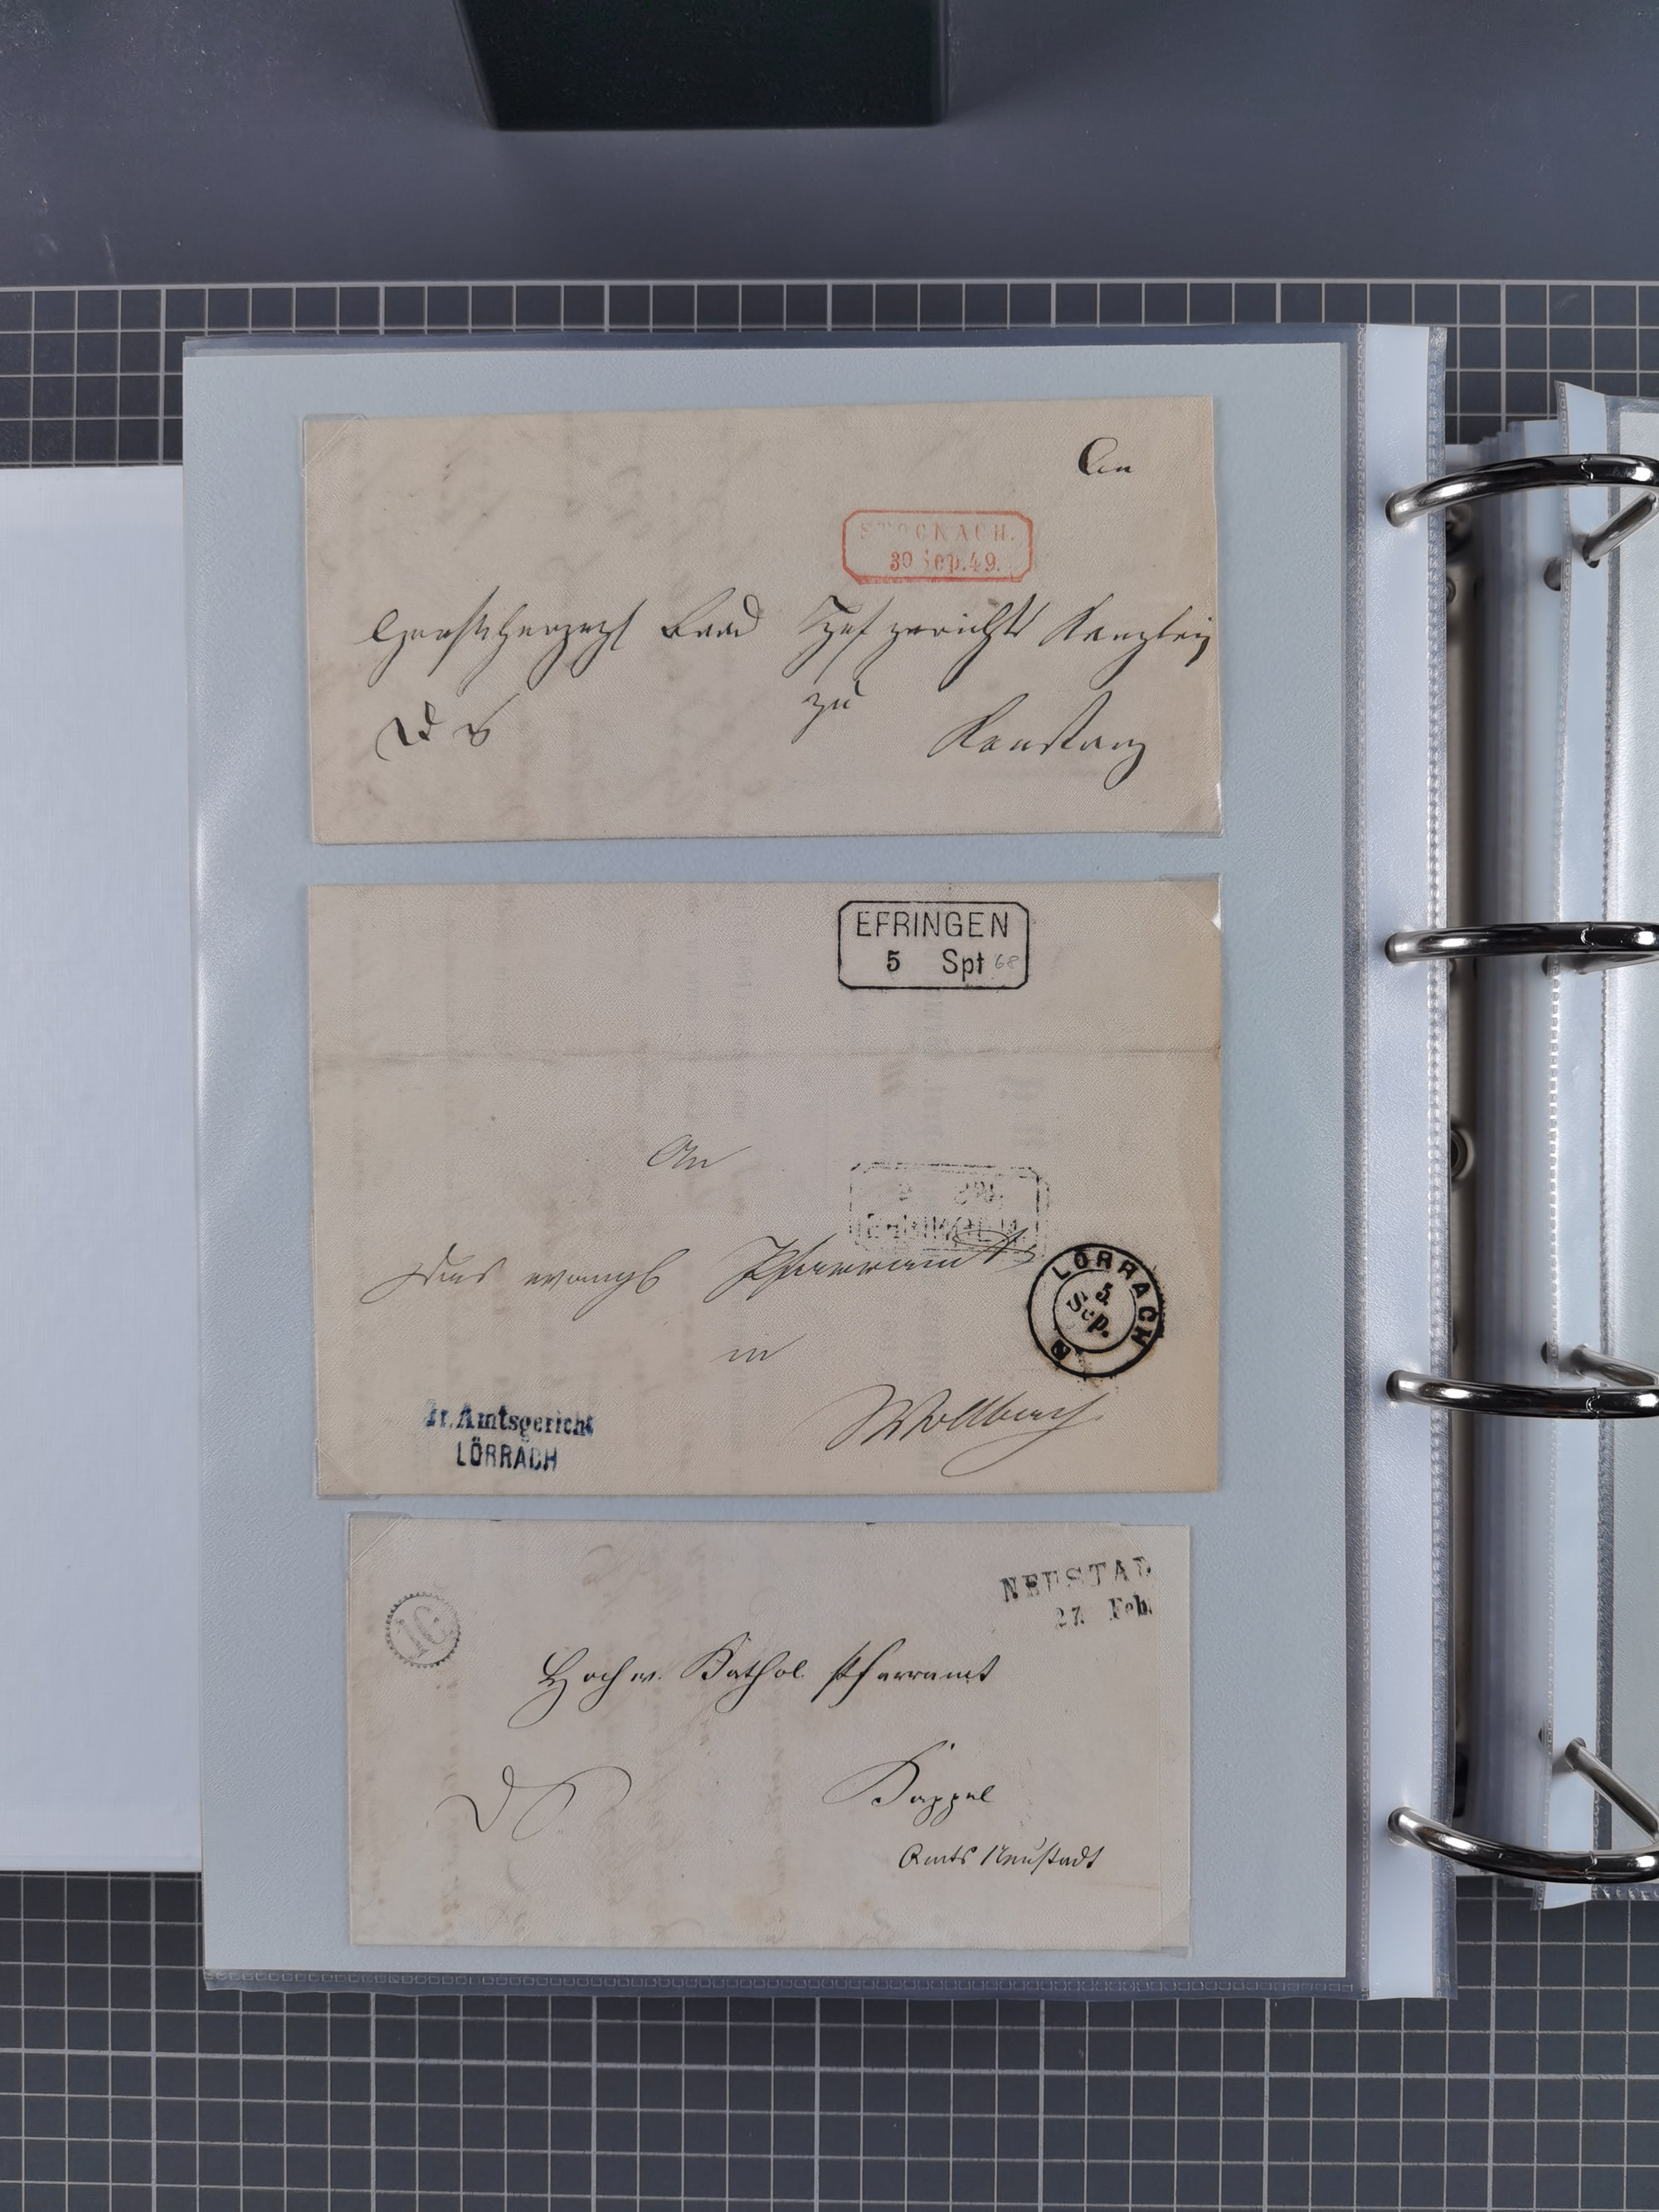 An
STOCKACH.
30 Sep. 49.
Großherzogl Bad Hofgerichts Kanzlei
zu
D S
Konstanz
EFRINGEN
5 Spt 68
An
das evangl Pfarramt
LÖRRACH
5.
Sep.
in
Wollbach
Gr. Amtsgericht
LÖRRACH
NEUSTAD
27. Feb.
Hochw. Kathol. Pfarramt
DS
Kappel
Amts Neustadt